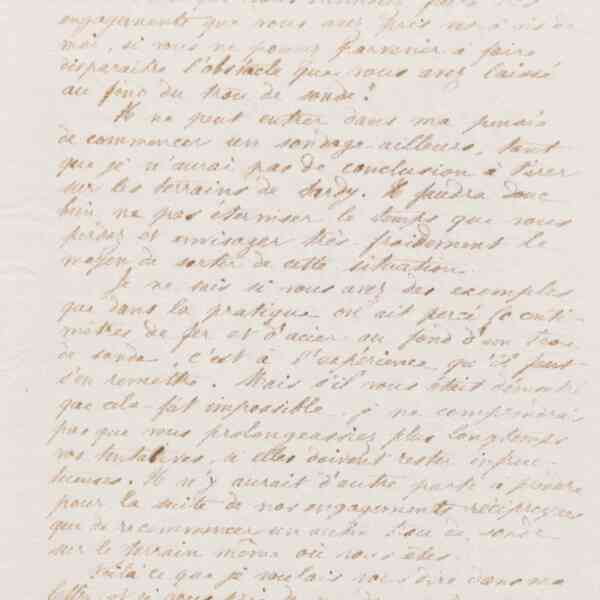 engagements que vous avez pris vis à vis de
moi, si vous ne pouvez parvenir à faire
disparaître l'obstacle que vous avez laissé
au fond du trou de sonde?
Il ne peut entrer dans ma pensée
de commencer un sondage ailleurs, tant
que je n'aurai pas de conclusion à tirer
sur les terrains de Sardy. Il faudra donc
bien ne pas éterniser le temps que vous
perdez et envisager très froidement le
moyen de sortir de cette situation.
Je ne sais si vous avez des exemples
que dans la pratique on ait percé 50 centi-
mètres de fer et d'acier au fond d'un trou
de sonde, c'est à l'expérience qu'il faut
s'en remettre. Mais s'il vous était démontré
que cela fut impossible, je ne comprendrais
pas que vous prolongeassiez plus longtemps
vos tentatives, si elles doivent rester infruc-
tueuses. Il n'y aurait d'autre parti à prendre
pour la suite de nos engagements réciproques
que de recommencer un autre trou de sonde
sur le terrain même où vous êtes.
Voilà ce que je voulais vous dire dans ma